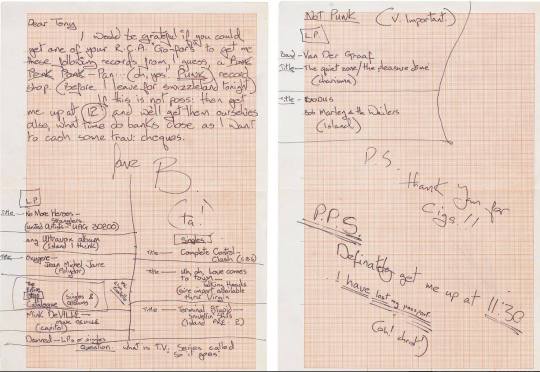 Dear Tony
I would be grateful if you could
get one of your R.C.A. "Go-fars" to get me
these following records from, I guess, a Punk
Penk Ponk - Pan... oh, yes, Punk, record
shop. (before I leave for Swizzleland tonight)
If this is not poss: then get
me up at 12 and we'll get them ourselves
also, what time do banks close as I want
to cash some trav: cheques.
love B.
(ta!)
LP
Title - No More Heroes -
Stranglers
(United Artists - UAG 30200)
any Ultravox album
(Island I think)
Title - Oxygene -
Jean Michel Jarre
(Polydor)
Catalogue
(Singles & albums)
Mink DeVILLE -
(capitol)
Damned - LPs or singles
Question: what is T.V. Series called
So it goes?
Singles
Title - Complete Control
Clash (CBS)
Title - Uh, oh, love comes
to town -
Talking Heads
(Sire import available
thru' Virgin
Title - Terminal Stupid
Snivelin Shits
Not Punk (V. Important)
LP
Band - Van Der Graaf
Title - The quiet zone/the pleasure dome
(charisma)
Title - Exodus
Bob Marley & the Wailers
(island)
P.S.
thank you for
Cigs!!
P.P.S.
Definately get me up at 11:30
I have lost my passport
(oh! christ)